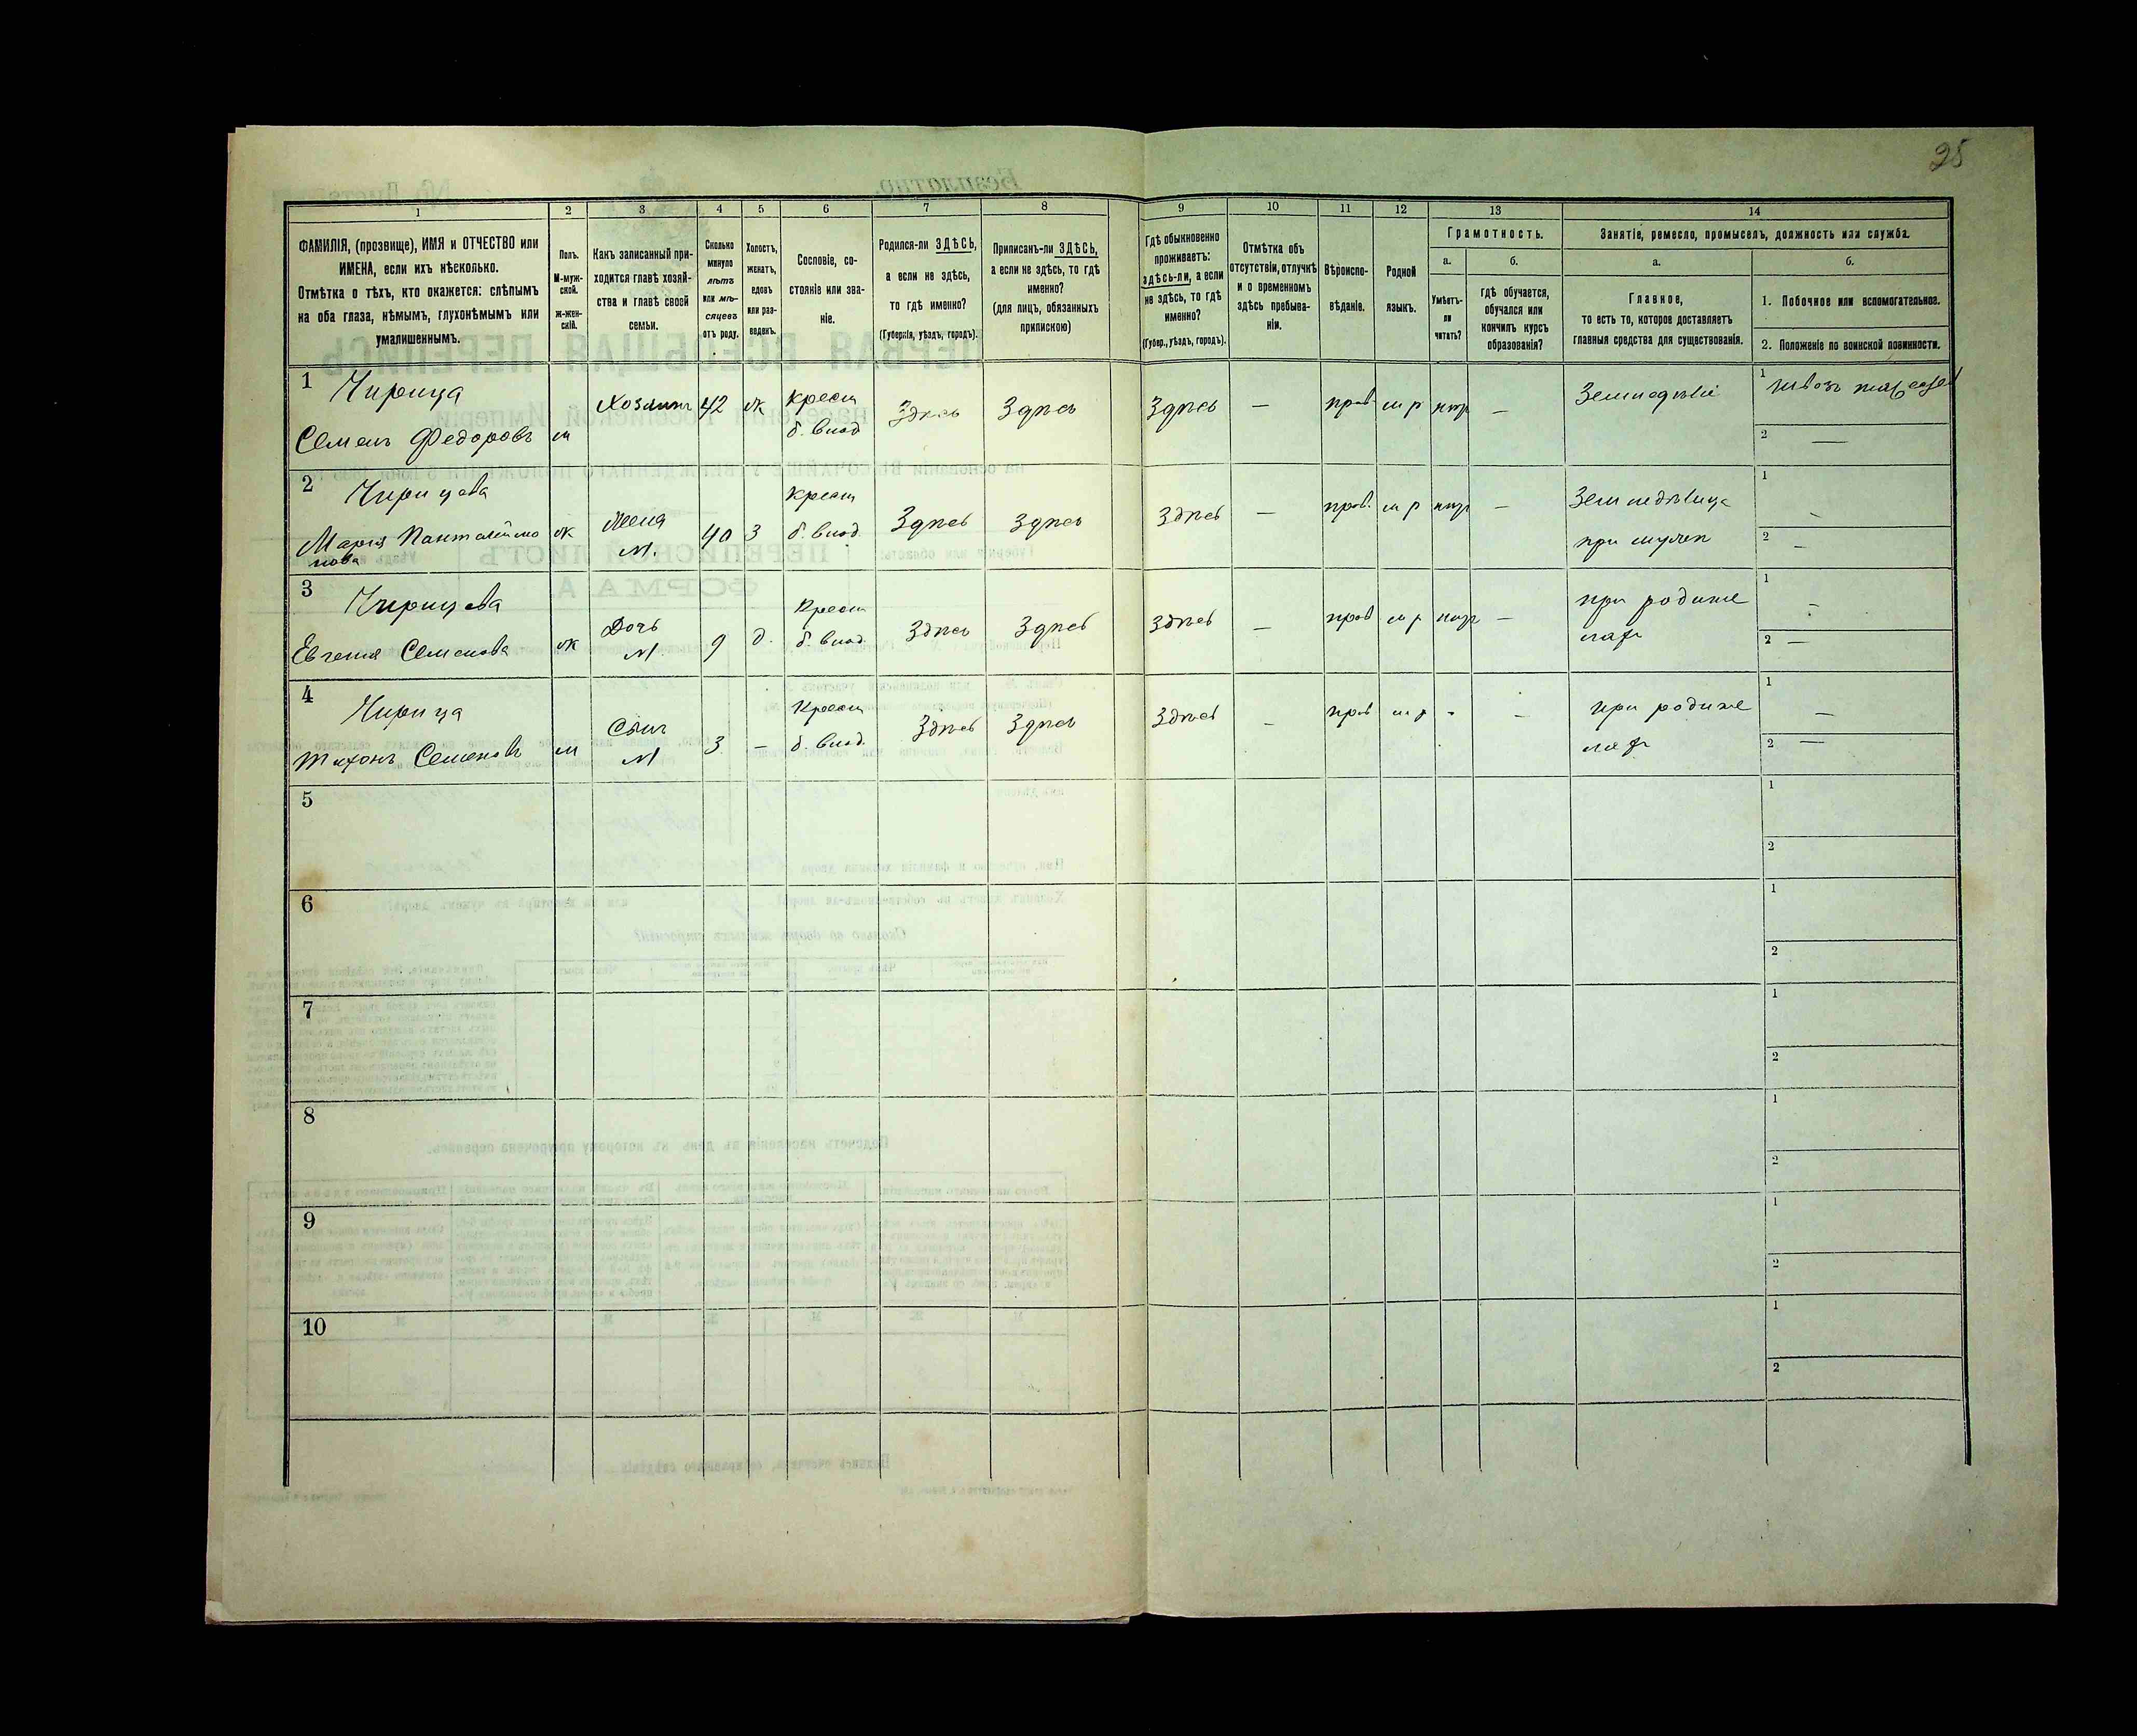 25
1 2 3 4 5 6 7 8 9 10 11 12 13 14
ФАМИЛІЯ, (прозвище), ИМЯ и ОТЧЕСТВО или
ИМЕНА, если ихъ нѣсколько.
Отмѣтка о тѣхъ, кто окажется: слѣпымъ
на оба глаза, нѣмымъ, глухонѣмымъ или
умалишеннымъ.
Полъ.
М-муж-
ской.
ж-жен-
скій.
Какъ записанный при-
ходится главѣ хозяй-
ства и главѣ своей
семьи.
Сколько
минуло
лѣтъ
или мѣ-
сяцевъ
отъ роду.
Холостъ,
женатъ,
вдовъ
или раз-
веденъ.
Сословіе, со-
стояніе или зва-
ніе.
Родился-ли ЗДѢСЬ,
а если не здѣсь,
то гдѣ именно?
(Губернія, уѣздъ, городъ).
Приписанъ-ли ЗДѢСЬ,
а если не здѣсь, то гдѣ
именно?
(для лицъ, обязанныхъ
припискою)
Гдѣ обыкновенно
проживаетъ:
здѣсь-ли, а если
не здѣсь, то гдѣ
именно?
(Губер., уѣздъ, городъ).
Отмѣтка объ
отсутствіи, отлучкѣ
и о временномъ
здѣсь пребыва-
ніи.
Вѣроиспо-
вѣданіе.
Родной
языкъ.
Грамотность.
а.
Умѣетъ-
ли
читать?
б.
гдѣ обучается,
обучался или
кончилъ курсъ
образованія?
Занятіе, ремесло, промыселъ, должность или служба.
а.
Главное,
то есть то, которое доставляетъ
главныя средства для существованія.
б.
1. Побочное или вспомогательное.
2. Положеніе по воинской повинности.
1 Чирица
Семенъ Федоровъ м
Хозяинъ 42 ж
крест
б. влад
Здѣсь Здѣсь Здѣсь — прав м р нтр —
Земледѣліе
1
2 —
2 Чирицева
Мария Пантелеймо
нова
ж
Жена
М.
40 З
Крест
б. влад.
Здѣсь Здѣсь Здѣсь — прав. м р нтр —
Земледѣлица
при мужѣ
1 -
2 —
3 Чирицева
Евгения Семенова ж
Дочь
М.
9 д.
Крест
б. влад.
Здѣсь Здѣсь Здѣсь — прав м р нтр —
при родите
ляхъ
1 -
2 —
4 Чирица
Тихонъ Семеновъ м
Сынъ
М
3 —
Крест
б. влад.
Здѣсь Здѣсь Здѣсь — прав м р - -
при родите
ляхъ
1 —
2 —
5
1
2
6
1
2
7
1
2
8
1
2
9
1
2
10
1
2